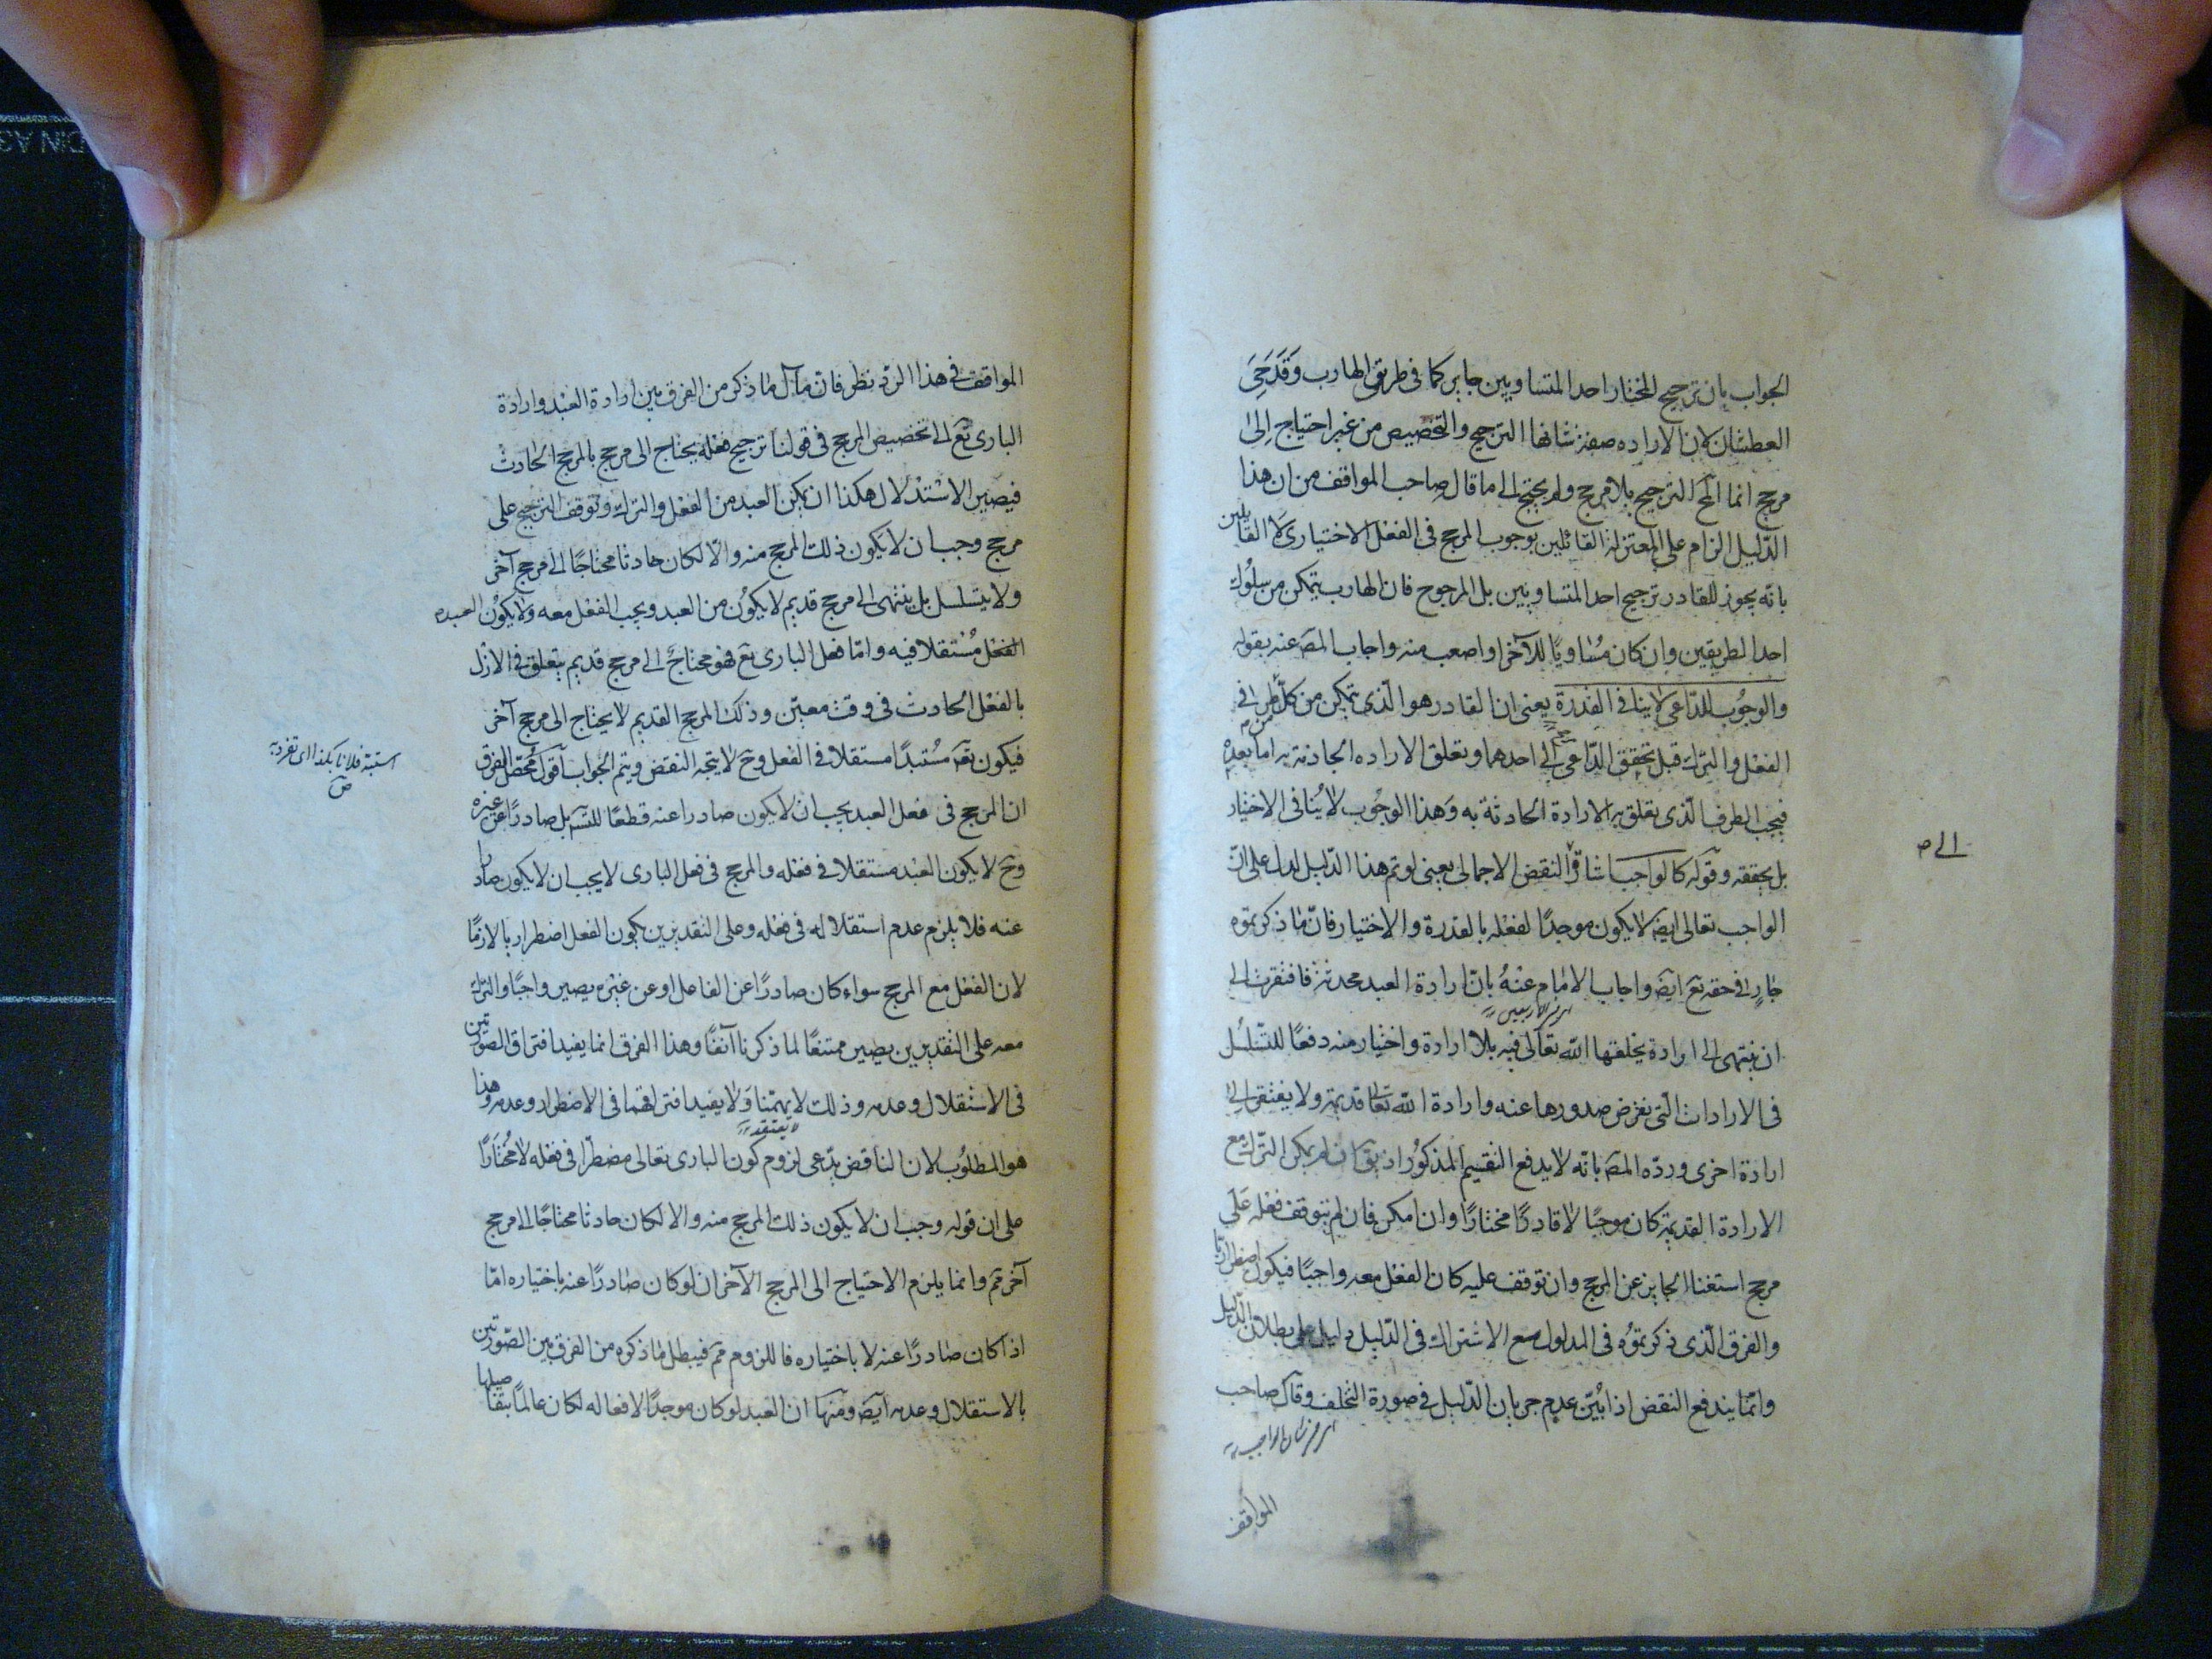 الجواب بان ترجيح المختار احد المتساويين جايز كما فى طريقى الهارب وقدحى
العطشان لان الاراده صفة شانها الترجيح والتخصيص من غير احتياج الى
مرجح انما المح الترجيح بلا مرجح ولم يحتج الى ما قال صاحب المواقف من ان هذا
الدليل الزام على المعتزلة القائلين بوجوب المرجح فى الفعل الاختيارى لا القايلين
بانه يجوز للقادر ترجيح احد المتساويين بل المرجوح فان الهارب يتمكن من سلوك
احد الطريقين وان كان مساويا للآخر او اصعب منه واجاب المصَ عنه بقوله
والوجوب للداعى لا ينافى القدرة يعنى ان القادر هو الذى يتمكن من كل طرفى
الفعل والترك قبل تحقق الداعى الى احدهما وتعلق الاراده الجاذمة به اما بعده
فيجب الطرف الذى تعلق به الارادة الحادثة به وهذا الوجوب لا ينافى الاختيار
بل يحققه وقوله كالواجب اشارة الى النقض الاجمالى يعنى لو تم هذا الدليل لدل على ان
الى ص
الواجب تعالى ايضَ لا يكون موجدًا لفعله بالقدرة والاختيار فان ما ذكرتموه
جارٍ فى حقه تعَ ايضَ واجاب الامام عنه بان ارادة العبد محدثة فافتقرت الى
ان ينتهى الى ارادة يخلقها الله تعالى فيه بلا ارادة واختيار منه دفعًا للتسلسل
فى الارادات التى نفرض صدورها عنه وارادة الله تعالى قديمة ولا يفتقر الى
ارادة اخرى ورده المصَ بانه لا يدفع التقسيم المذكور اذ يقَ ان لم يمكن الترك مع
الارادة القديمة كان موجبًا لا قادرًا مختارًا وان امكن فان لم يتوقف فعله على
مرجح استغنا الجايز عن المرجح وان توقف عليه كان الفعل معه واجبًا فيكون اضطراريا
والفرق الذى ذكرتموه فى المدلول مع الاشتراك فى الدليل دليل على بطلان الدليل
وانما يندفع النقض اذا بُيّن عدم جريان الدليل فى صورة التخلف وقال صاحب
المواقف
المواقف فى هذا الرد نظر فان مآل ما ذكر من الفرق بين ارادة العبد وارادة
البارى تعَ الى تخصيص المرجح فى قولنا ترجيح فعله يحتاج الى مرجح بالمرجح الحادث
فيصير الاستدلال هكذا ان تمكن العبد من الفعل والترك وتوقف الترجيح على
مرجح وجب ان لا يكون ذلك المرجح منه والّا لكان حادثا محتاجًا الى مرجح آخر
ولا يتسلسل بل ينتهى الى مرجح قديم لا يكون من العبد ويجب الفعل معه ولا يكون العبد
الفعل مُستقلا فيه واما فعل البارى تعَ فهو محتاجٌ الى مرجح قديم يتعلق فى الازل
بالفعل الحادث فى وقت معين وذلك المرجح القديم لا يحتاج الى مرجح آخر
فيكون تعَ مُستبدًا مستقلا فى الفعل وحَ لا يتجه النقض ويتم الجواب اقول محصّل الفرق
استبد فلان بكذا اى تفرد به
ص
ان المرجح فى فعل العبد يجب ان لا يكون صادرا عنه قطعًا للتسَ بل صادرًا عن غيره
وحَ لا يكون العبد مستقلا فى فعله والمرجح فى فعل البارى لا يجب ان لا يكون صادرا
عنه فلا يلزم عدم استقلاله فى فعله وعلى التقديرين يكون الفعل اضطراريا لازمًا
لان الفعل مع المرجح سواء كان صادرًا عن الفاعل او عن غيره يصير واجبًا والترك
معه على التقديرين يصير ممتنعًا لما ذكرنا آنفًا وهذا الفرق انما يفيد افتراق الصورتين
فى الاستقلال وعدمه وذلك لا يهمّنا ولا يفيد افتراقهما فى الاضطرار وعدمه وهذا
هو المطلوب لان الناقض يدّعى لزوم كون البارى تعالى مضطرًا فى فعله لا مختارًا
على ان قوله وجب ان لا يكون ذلك المرجح منه والا لكان حادثا محتاجًا الى مرجح
آخر مَم وانما يلزم الاحتياج الى المرجح الآخر ان لو كان صادرًا عنه باختياره امّا
اذا كان صادرًا عنه لا باختياره فاللزوم مَم فيبطل ما ذكره من الفرق بين الصورتين
بالاستقلال وعدمه ايضَ ومنها ان العبد لو كان موجدًا لافعاله لكان عالمًا بتفاصيلها